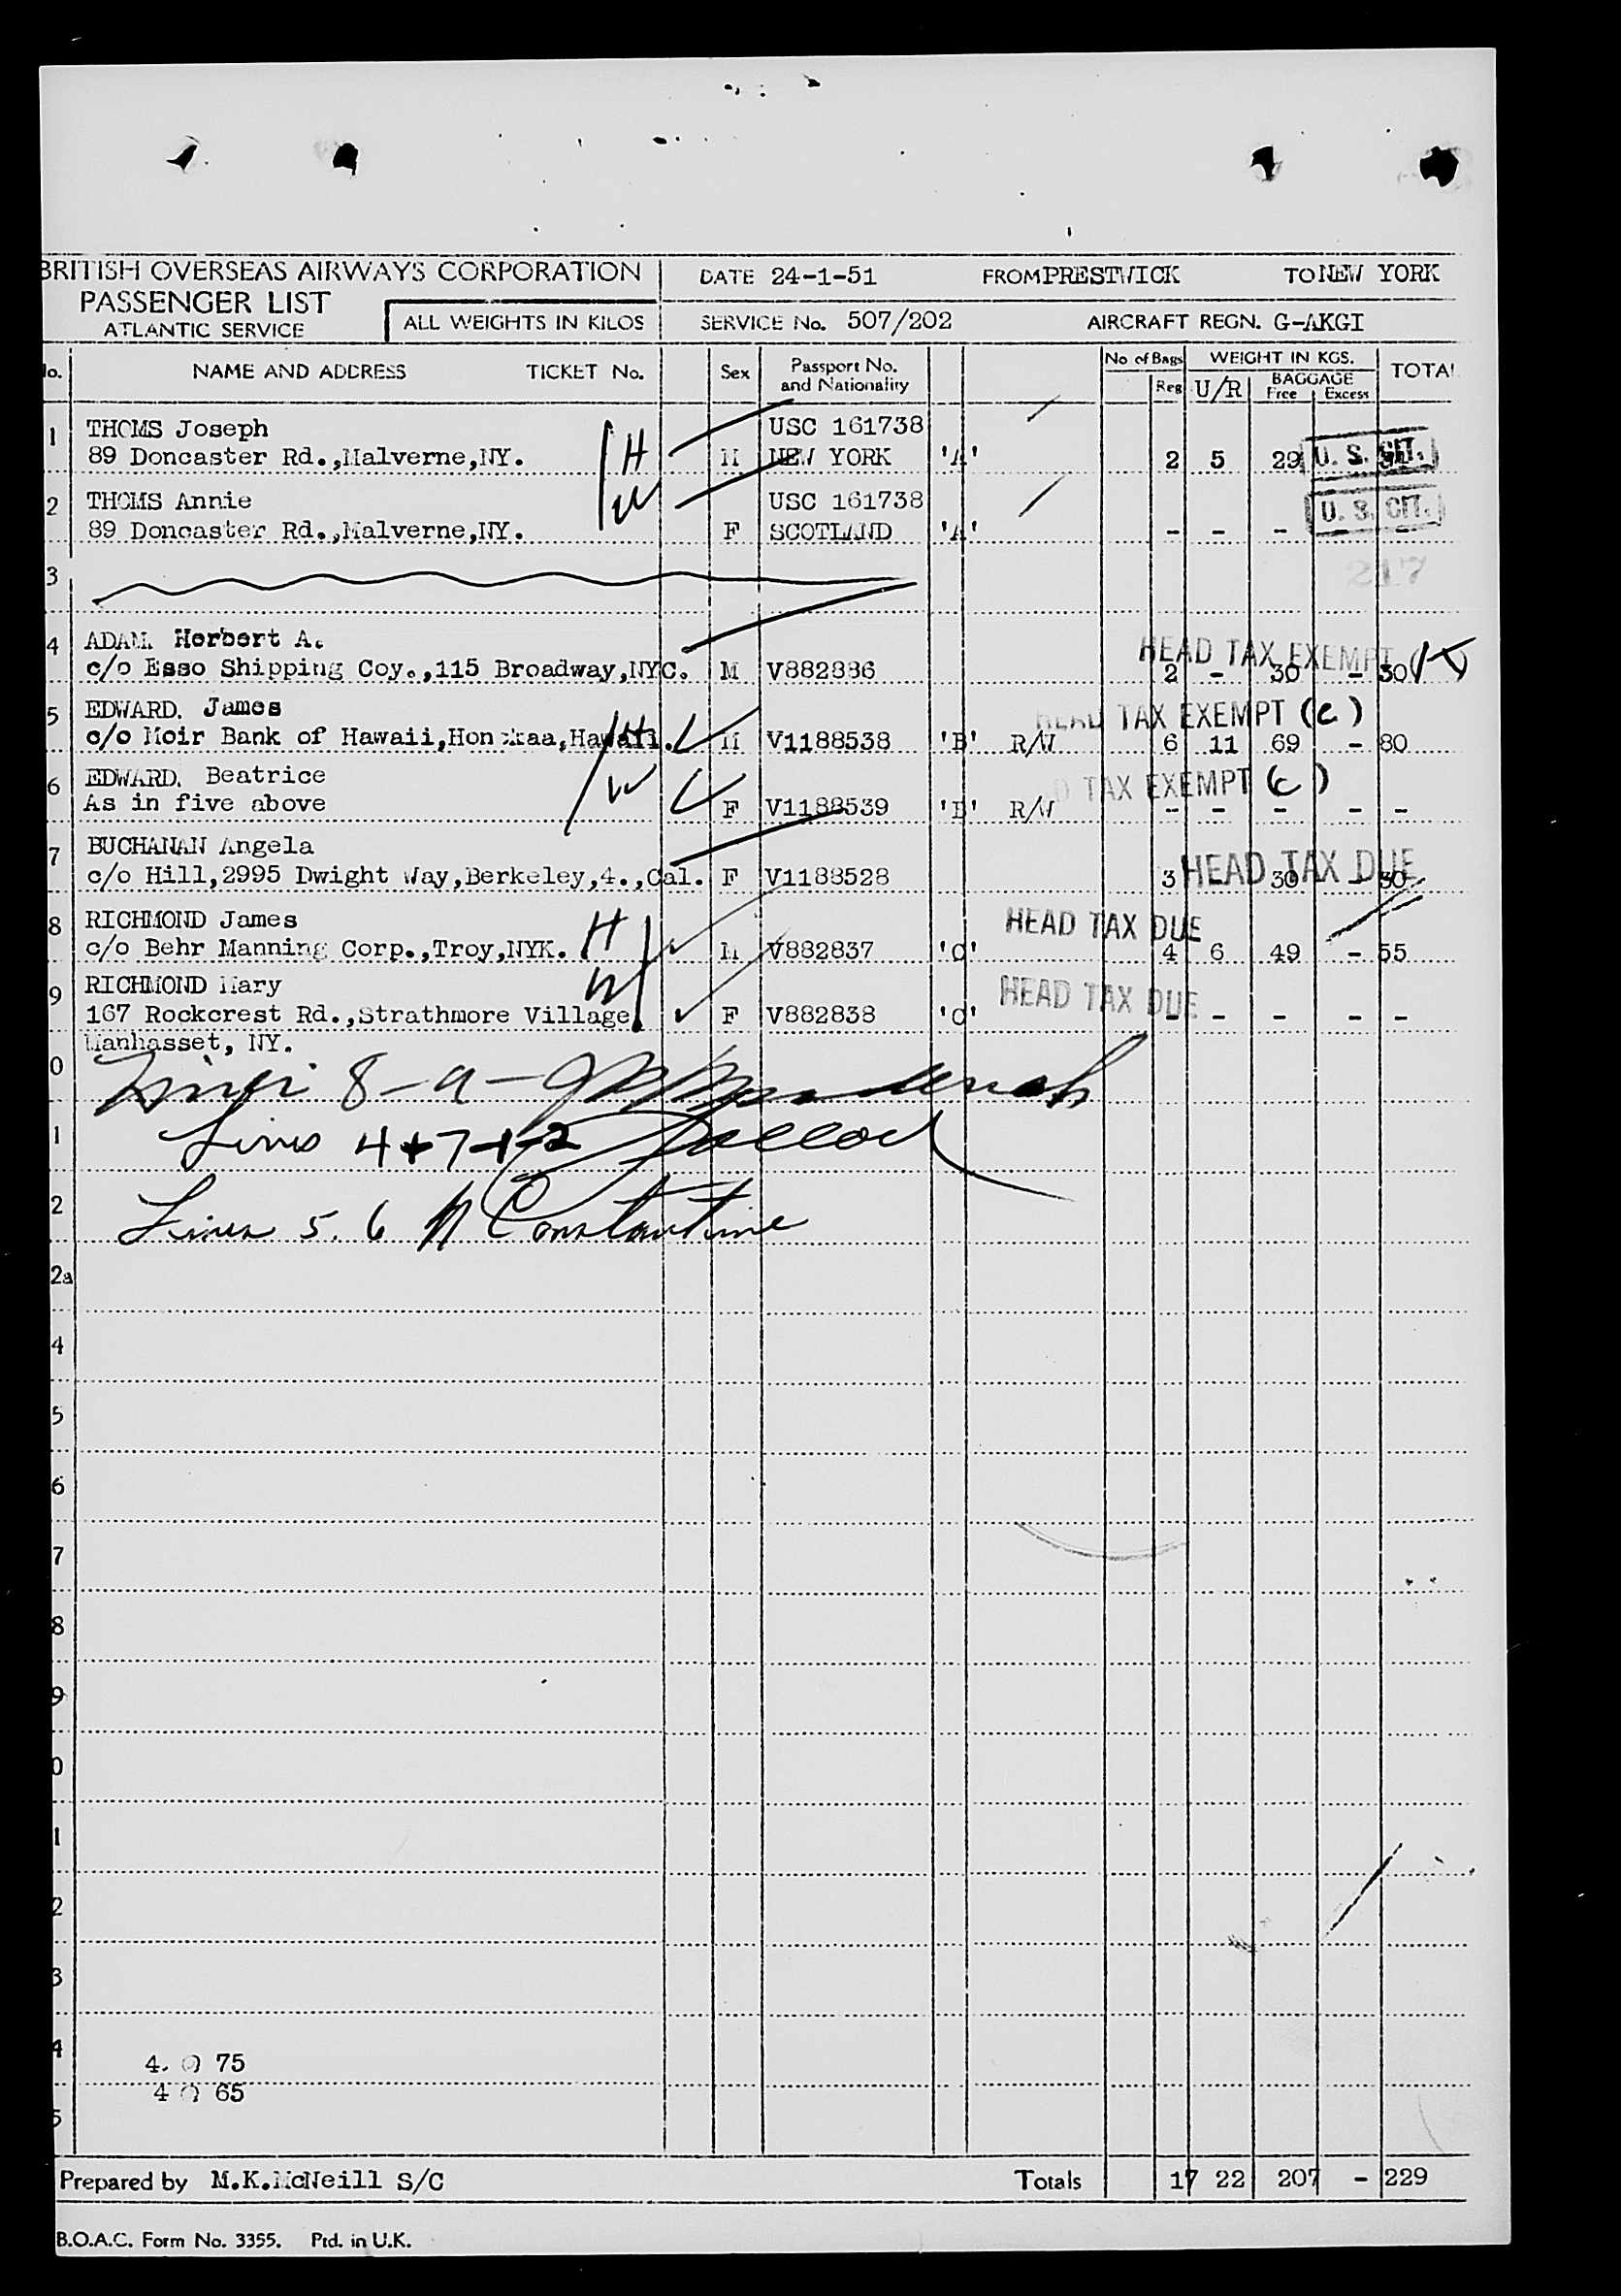 BRITISH OVERSEAS AIRWAYS CORPORATION
PASSENGER LIST
ATLANTIC SERVICE
ALL WEIGHTS IN KILOS
DATE 24-1-51 FROM PRESTWICK TO NEW YORK
SERVICE No. 507/202 AIRCRAFT REGN. G-AKGI
No. NAME AND ADDRESS TICKET No. Sex Passport No. and Nationality No of Bags Reg WEIGHT IN KGS. U/R BAGGAGE Free Excess TOTAL
1 THOMS Joseph USC 161738
89 Doncaster Rd.,Malverne,NY. H M NEW YORK 'A' 2 5 29 U. S. CIT.
2 THOMS Annie W USC 161738 U. S. CIT.
89 Doncaster Rd.,Malverne,NY. F SCOTLAND 'A' - - - -
3 217
4 ADAM. Herbert A. HEAD TAX EXEMPT
c/o Esso Shipping Coy.,115 Broadway,NYC. M V882836 2 - 30 - 30
5 EDWARD. James HEAD TAX EXEMPT (C)
c/o Moir Bank of Hawaii,Honokaa,Hawaii. H M V1188538 'B' R/W 6 11 69 - 80
6 EDWARD. Beatrice W TAX EXEMPT (C)
As in five above F V1188539 'B' R/W - - - - -
7 BUCHANAN Angela HEAD TAX DUE
c/o Hill,2995 Dwight Way,Berkeley,4.,Cal. F V1188528 3 30 - 30
8 RICHMOND James H HEAD TAX DUE
c/o Behr Manning Corp.,Troy,NYK. M V882837 'C' 4 6 49 - 55
9 RICHMOND Mary W HEAD TAX DUE
167 Rockcrest Rd.,Strathmore Village F V882838 'C' - - - - -
Manhasset, NY.
0 8-9-
1 Lines 4+7-1-2
2 Lines 5. 6 N Constantine
2a
4
5
6
7
8
9
0
1
2
3
4 4. 0 75
4 0 65
5
Prepared by M.K.McNeill S/C Totals 17 22 207 - 229
B.O.A.C. Form No. 3355. Ptd. in U.K.